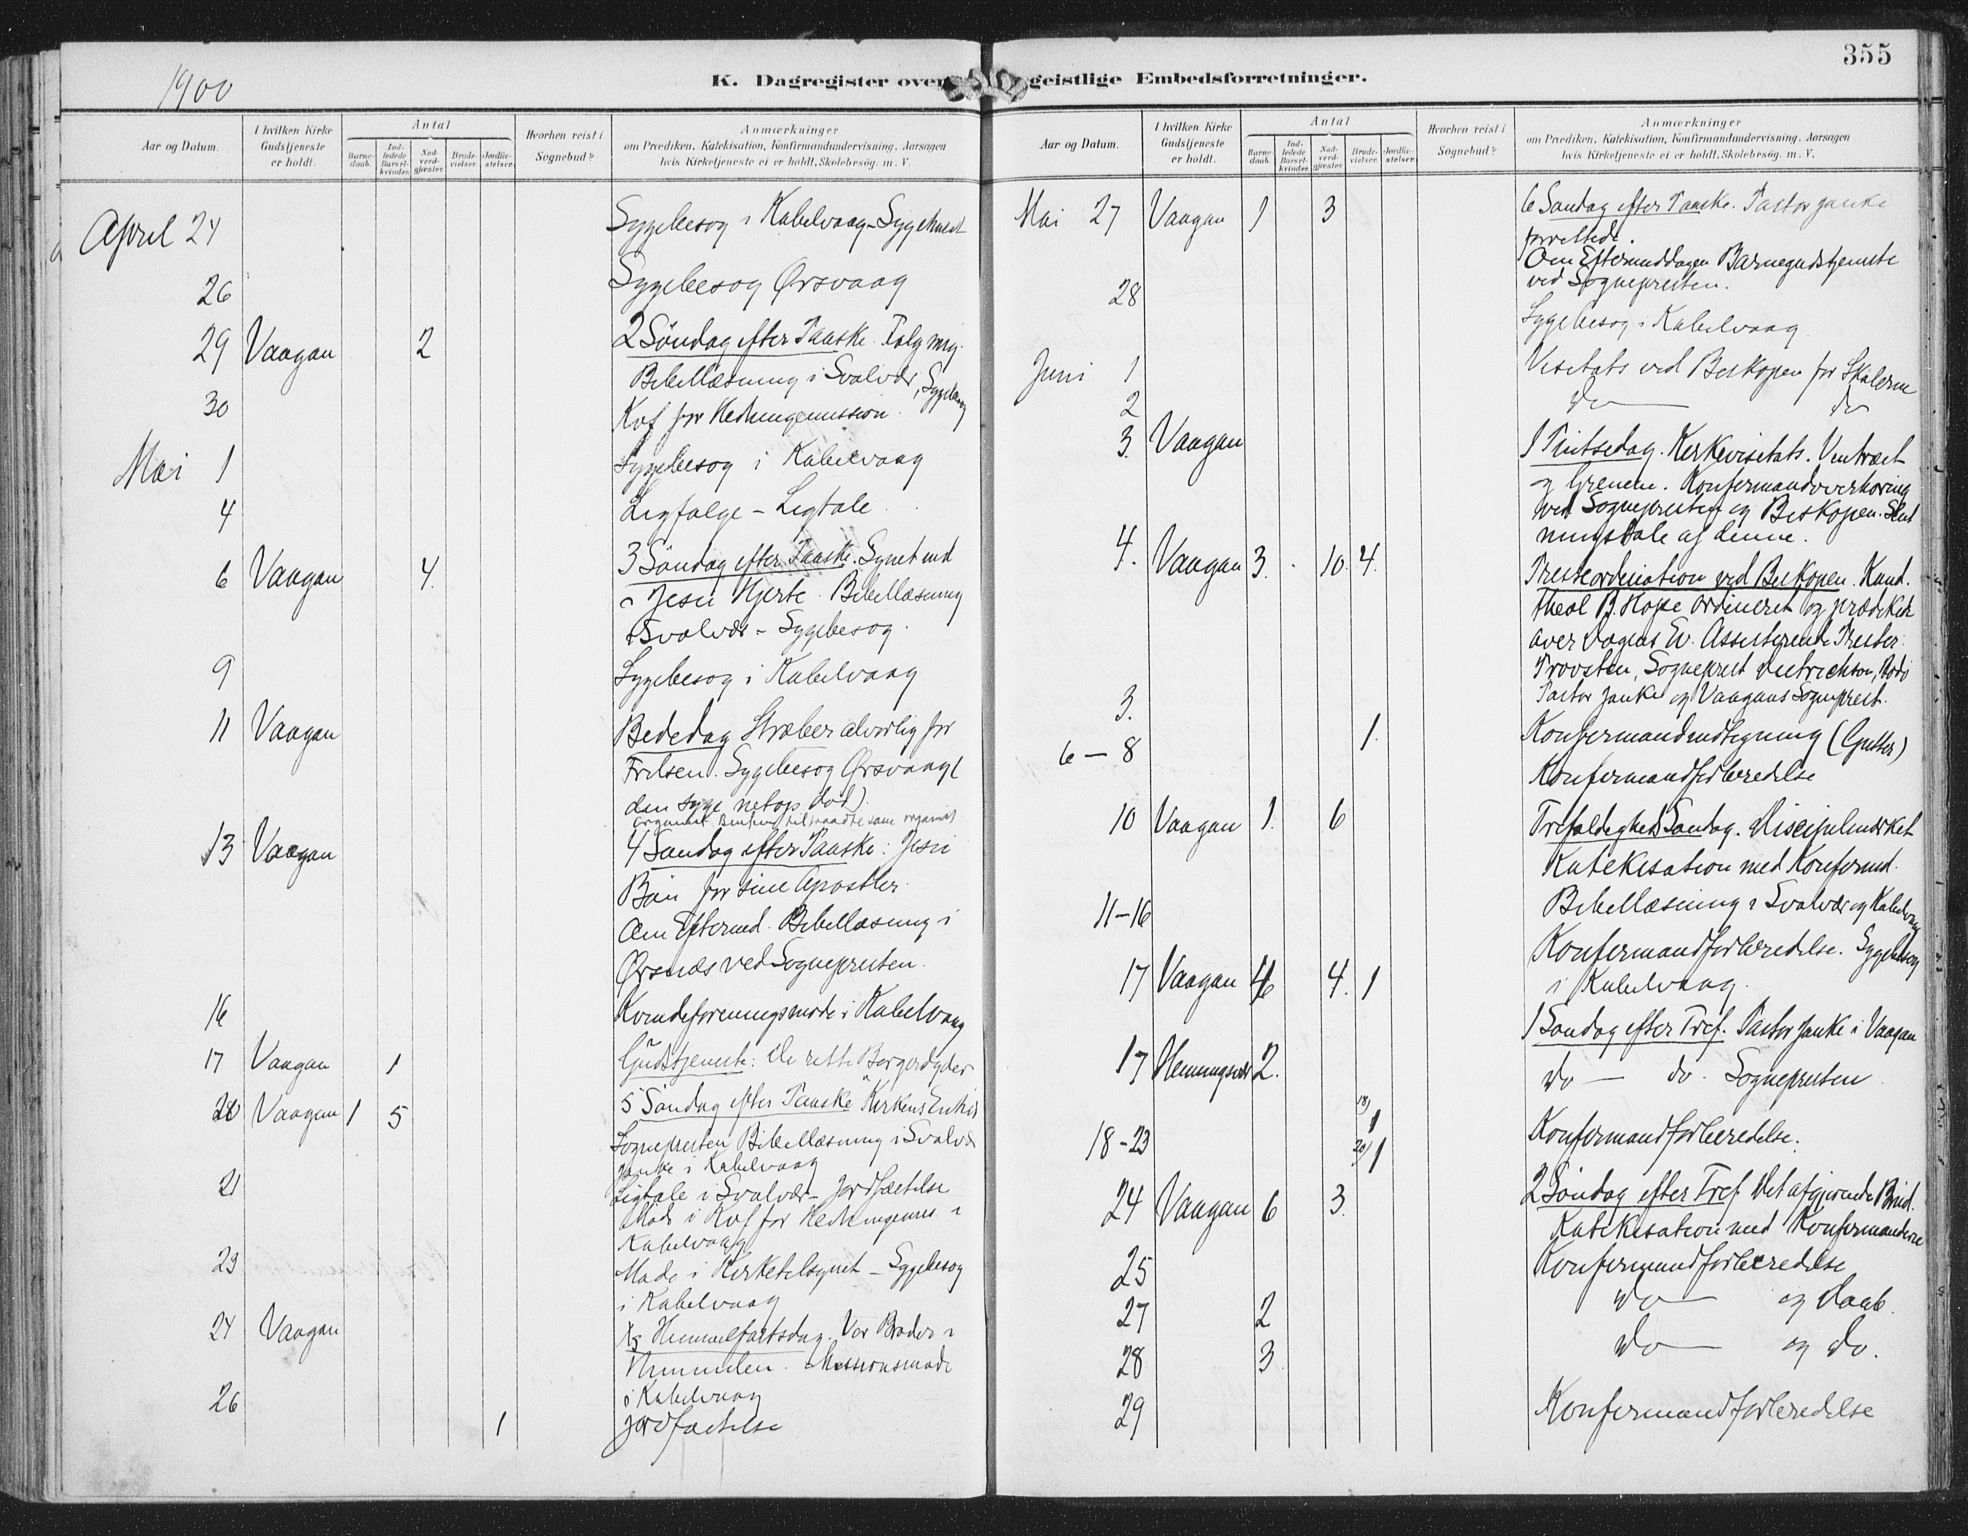 355
1900
K. Dagregister over geistlige Embedsforretninger.
Aar og Datum.
I hvilken Kirke Gudstjeneste er holdt.
Antal
Barnedaab.
Indledede Barselkvinder.
Nadverdgjæster.
Brudevielser.
Jordfæstelser.
Hvorhen reist i Sognebud?
Anmærkninger
om Prædiken, Katekisation, Konfirmandundervisning, Aarsagen
hvis Kirketjeneste ei er holdt, Skolebesøg. m. V.
April 24 Sygebesøg i Kabelvaag - Sygehuset
26 Sygebesøg Ørsvaag
29 Vaagan 2 2 Søndag efter Paaske. Følg mig.
Bibellæsning i Svolvær, Sygebesøg
30 Kvf for Hedningemission.
Mai 1 Sygebesøg i Kabelvaag
4 Ligfølge - Ligtale.
6 Vaagan 4. 3 Søndag efter Paaske. Synet ind
i Jesu Hjerte. Bibellæsning
i Svolvær - Sygebesøg.
9 Sygebesøg i Kabelvaag
11 Vaagan Bededag Stræber alvorlig for
Frelsen. Sygebesøg Ørsvaag (
den syge netop død).
Organist tiltraadte som organist
13 Vaagan 4 Søndag efter Paaske: Jesu
Bøn for sine Apostler.
Om Eftermd. Bibellæsning i
Ørsnes ved Sognepresten.
16 Kvindeforeningsmøde i Kabelvaag
17 Vaagan 1 Gudstjeneste: De rette Borgerdyder
20 Vaagan 1 5 5 Søndag efter Paaske Kirkens
Sognepresten Bibellæsning i Svolvær
Janke i Kabelvaag
21 Ligtale i Svolvær - Jordfæstelse
Møde i Kvf for Hedningemis. i
Kabelvaag
23 Møde i Kirketilsynet - Sygebesøg
i Kabelvaag
24 Vaagan Kr Himmelfartsdag. Vor Broder i
Himmelen. Missionsmøde
i Kabelvaag
26 1 Jordfæstelse
Aar og Datum.
I hvilken Kirke Gudstjeneste er holdt.
Antal
Barnedaab.
Indledede Barselkvinder.
Nadverdgjæster.
Brudevielser.
Jordfæstelser.
Hvorhen reist i Sognebud?
Anmærkninger
om Prædiken, Katekisation, Konfirmandundervisning, Aarsagen
hvis Kirketjeneste ei er holdt, Skolebesøg. m. V.
Mai 27 Vaagan 1 3 6 Søndag efter Paaske. Pastor Janke
forrettede.
Om Eftermiddagen Barnegudstjeneste
ved Sognepresten.
28 Sygebesøg i Kabelvaag
Juni 1 Visitats ved Biskopen for Skolerne
2 do — do
3. Vaagan 1 Pintsedag. Kirkevisitats. Vintræet
og Grenene. Konfirmandoverhøring
ved Sognepresten og Biskopen. Slut
ningstale af denne.
4. Vaagan 3. 10. 4. Presteordination ved Biskopen. Kand.
theol B. Hope ordineret og prædiket
over Dagens Ev. Assisterende Prester:
Provsten, Sogneprest Dietrichson, Bodø
Pastor Janke og Vaagans Sogneprest.
3. 1. Konfirmandindtegning (Gutter)
6 — 8 Konfirmandforberedelse
10 Vaagan 1. 6 Trefoldigheds Søndag. Discipelmærket
Katekisation med Konfirmd.
Bibellæsning i Svolvær og Kabelvaag
11-16 Konfirmandforberedelse. Sygebesøg
i Kabelvaag.
17 Vaagan 4 4. 1 1 Søndag efter Tref. Pastor Janke i Vaagan
17 Henningsvær 2. do — do. Sognepresten
18-23 18) 1 20) 1 Konfirmandforberedelse.
24 Vaagan 6 3. 2 Søndag efter Tref. Det afgjørende Brud.
Katekisation med Konfirmanderne
25 Konfirmandforberedelse
27 2 do — og Daab.
28 3 do — og do.
29 Konfirmandforberedelse